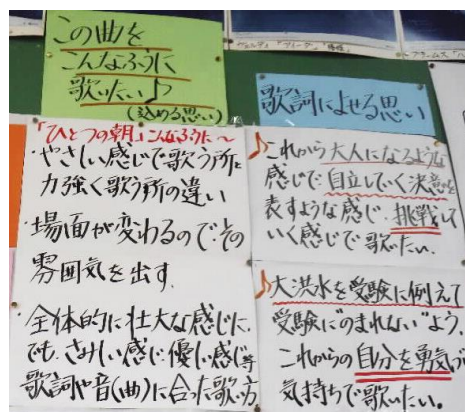 この曲を
こんなふうに
歌いたい♪
(込める思い)
「ひとつの朝」こんなふうに～
・やさしい感じで歌う所と
力強く歌う所の違い
・場面が変わるのでその
雰囲気を出す.
・全体的に壮大な感じに.
でも、さみしい感じ・優しい感じ等
歌詞や音(曲)に合った歌い方
歌詞によせる思い
♪これから大人になるような
感じで自立していく決意を
表すような感じ. 挑戦して
いく感じで歌いたい.
♪大洪水を受験に例えて
受験に"のまれない"よう.
これからの自分を勇気づ
気持ちで歌いたい.